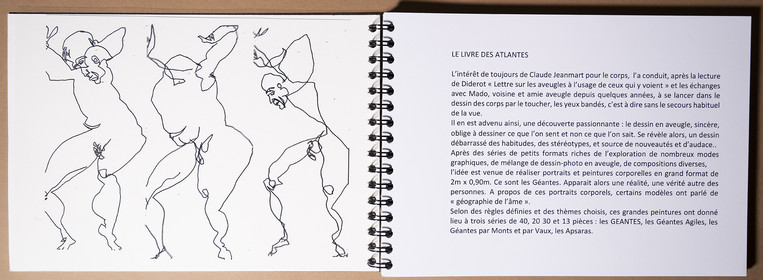 LE LIVRE DES ATLANTES
L'intérêt de toujours de Claude Jeanmart pour le corps, l'a conduit, après la lecture
de Diderot « Lettre sur les aveugles à l'usage de ceux qui y voient » et les échanges
avec Mado, voisine et amie aveugle depuis quelques années, à se lancer dans le
dessin des corps par le toucher, les yeux bandés, c'est à dire sans le secours habituel
de la vue.
Il en est advenu ainsi, une découverte passionnante : le dessin en aveugle, sincère,
oblige à dessiner ce que l'on sent et non ce que l'on sait. Se révèle alors, un dessin
débarrassé des habitudes, des stéréotypes, et source de nouveautés et d'audace..
Après des séries de petits formats riches de l'exploration de nombreux modes
graphiques, de mélange de dessin-photo en aveugle, de compositions diverses,
l'idée est venue de réaliser portraits et peintures corporelles en grand format de
2m x 0,90m. Ce sont les Géantes. Apparait alors une réalité, une vérité autre des
personnes. A propos de ces portraits corporels, certains modèles ont parlé de
« géographie de l'âme ».
Selon des règles définies et des thèmes choisis, ces grandes peintures ont donné
lieu à trois séries de 40, 20 30 et 13 pièces : les GEANTES, les Géantes Agiles, les
Géantes par Monts et par Vaux, les Apsaras.